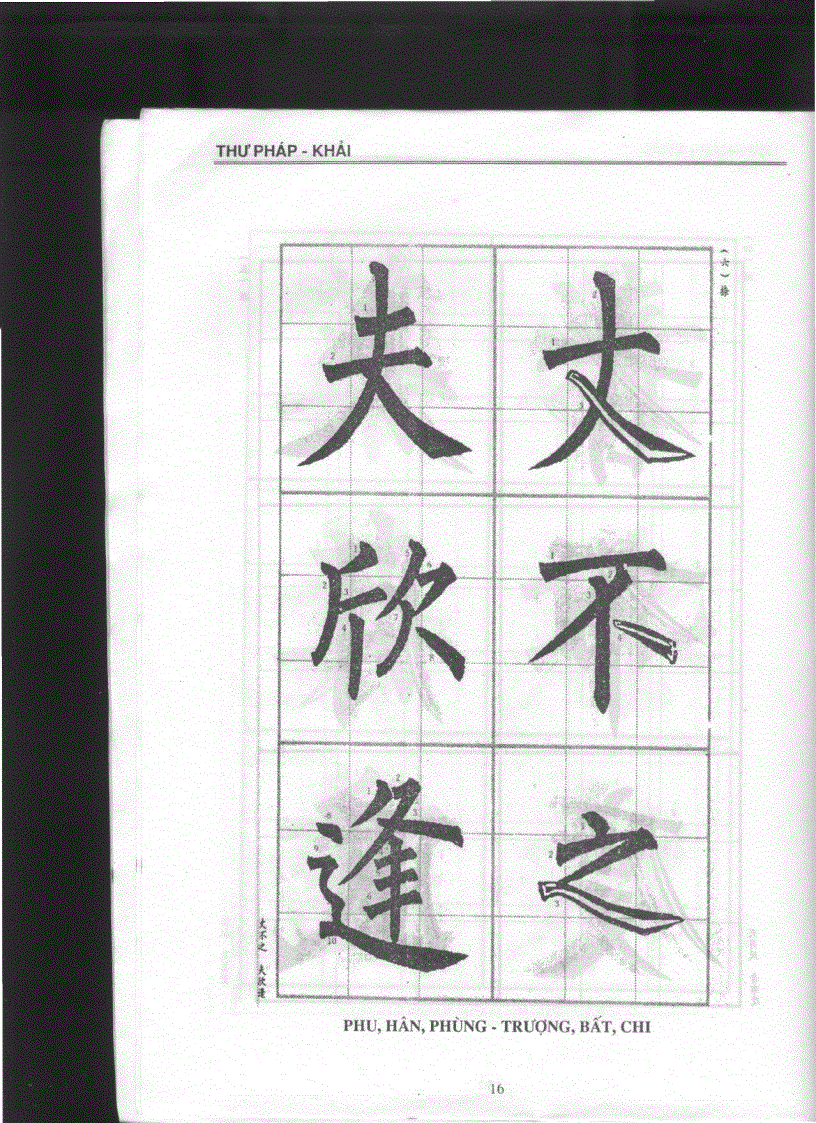 THƯ PHÁP - KHẢI
（六）捺
夫 丈
欣 不
逢 之
丈不之 夫欣逢
PHU, HÂN, PHÙNG - TRƯỢNG, BẤT, CHI
16